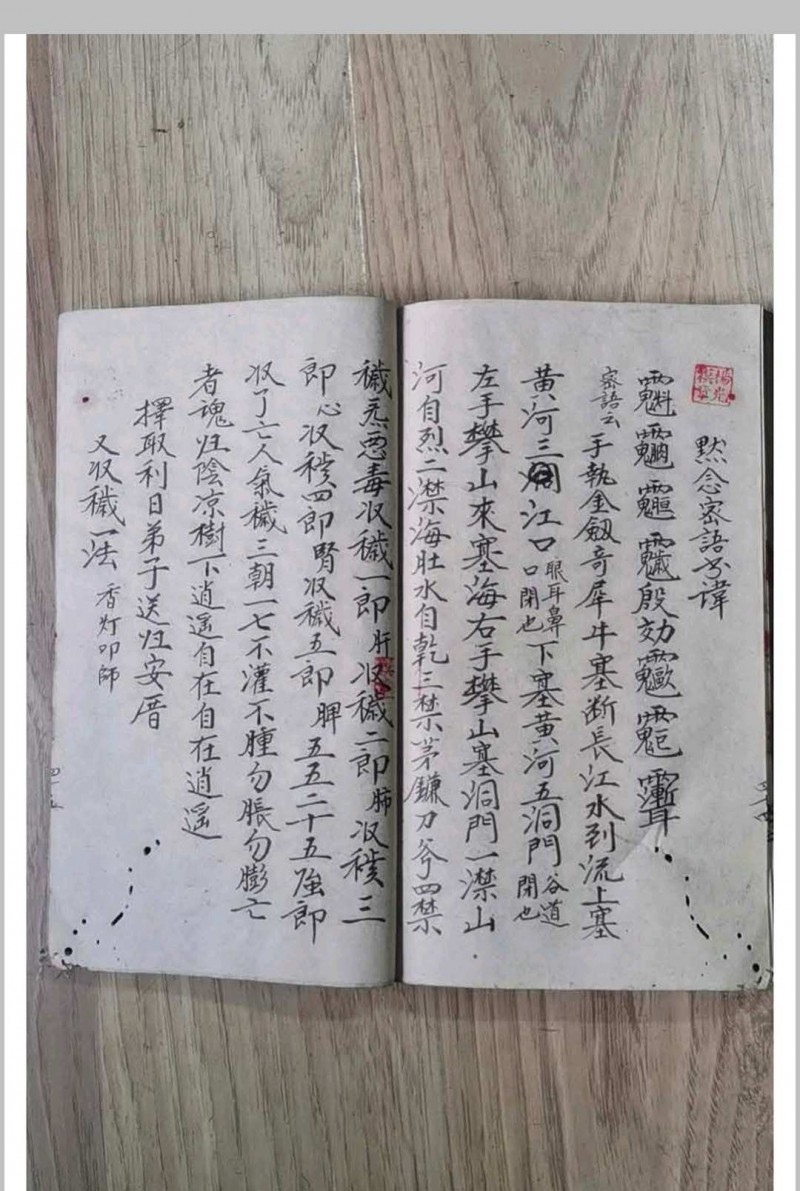 默念密語字諱
魁 殷効
密語云 手執金劔奇犀牛塞断長江水到流上塞
黄河三洞江口 眼耳鼻口閉也 下塞黄河五洞門 谷道閉也
左手攀山來塞海右手攀山塞洞門一禁山
河自烈二禁海肚水自乾三禁茅鐮刀爷四禁
穢炁恶毒収穢一郎 肝 収穢二郎 肺 収穢三
郎 心 収穢四郎 腎 収穢五郎 脾 五五二十五強郎
収了亡人氣穢三朝一七不灌不腫勿脹勿膨亡
者魂归陰凉樹下逍遥自在自在逍遥
擇取利日弟子送归安厝
又収穢一法 香灯叩師